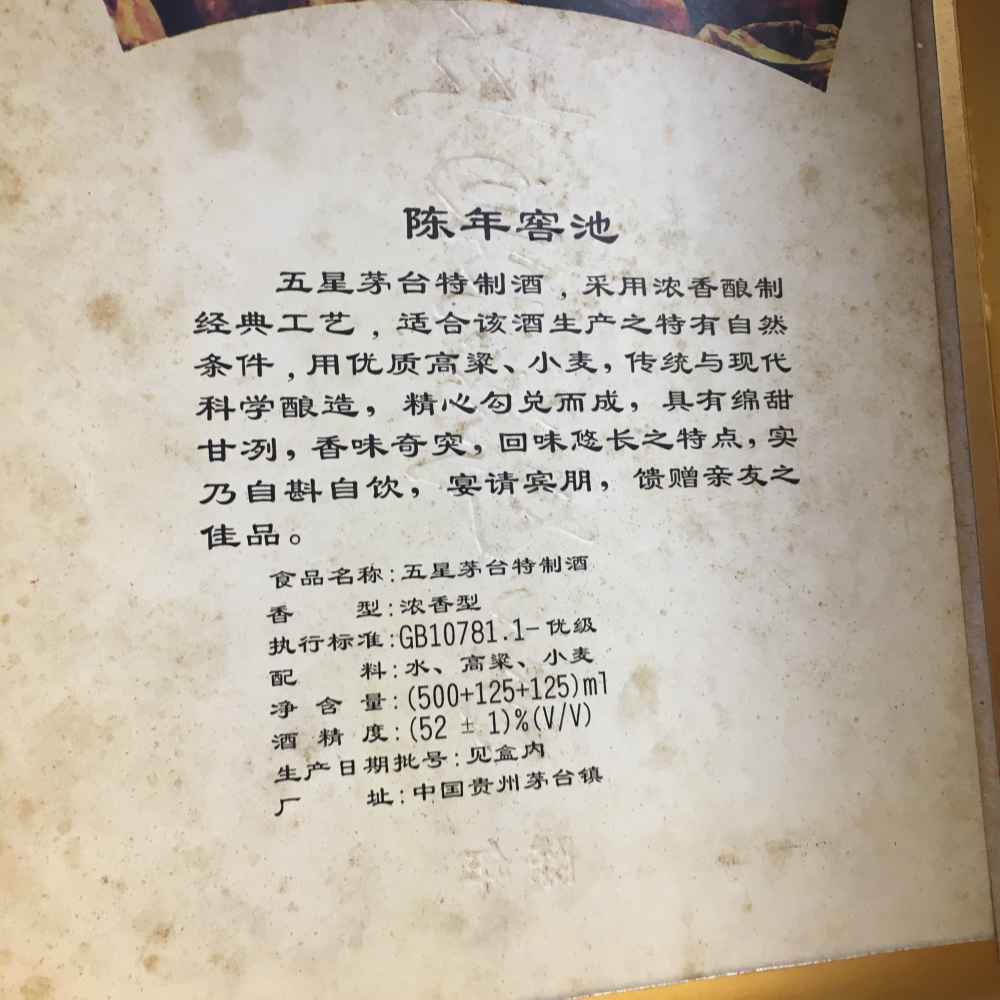 陈年窖池
五星茅台特制酒，采用浓香酿制
经典工艺，适合该酒生产之特有自然
条件，用优质高粱、小麦，传统与现代
科学酿造，精心勾兑而成，具有绵甜
甘冽，香味奇突，回味悠长之特点，实
乃自斟自饮，宴请宾朋，馈赠亲友之
佳品。
食品名称:五星茅台特制酒
香型:浓香型
执行标准:GB10781.1-优级
配料:水、高粱、小麦
净含量:(500+125+125)ml
酒精度:(52±1)%(V/V)
生产日期批号:见盒内
厂址:中国贵州茅台镇